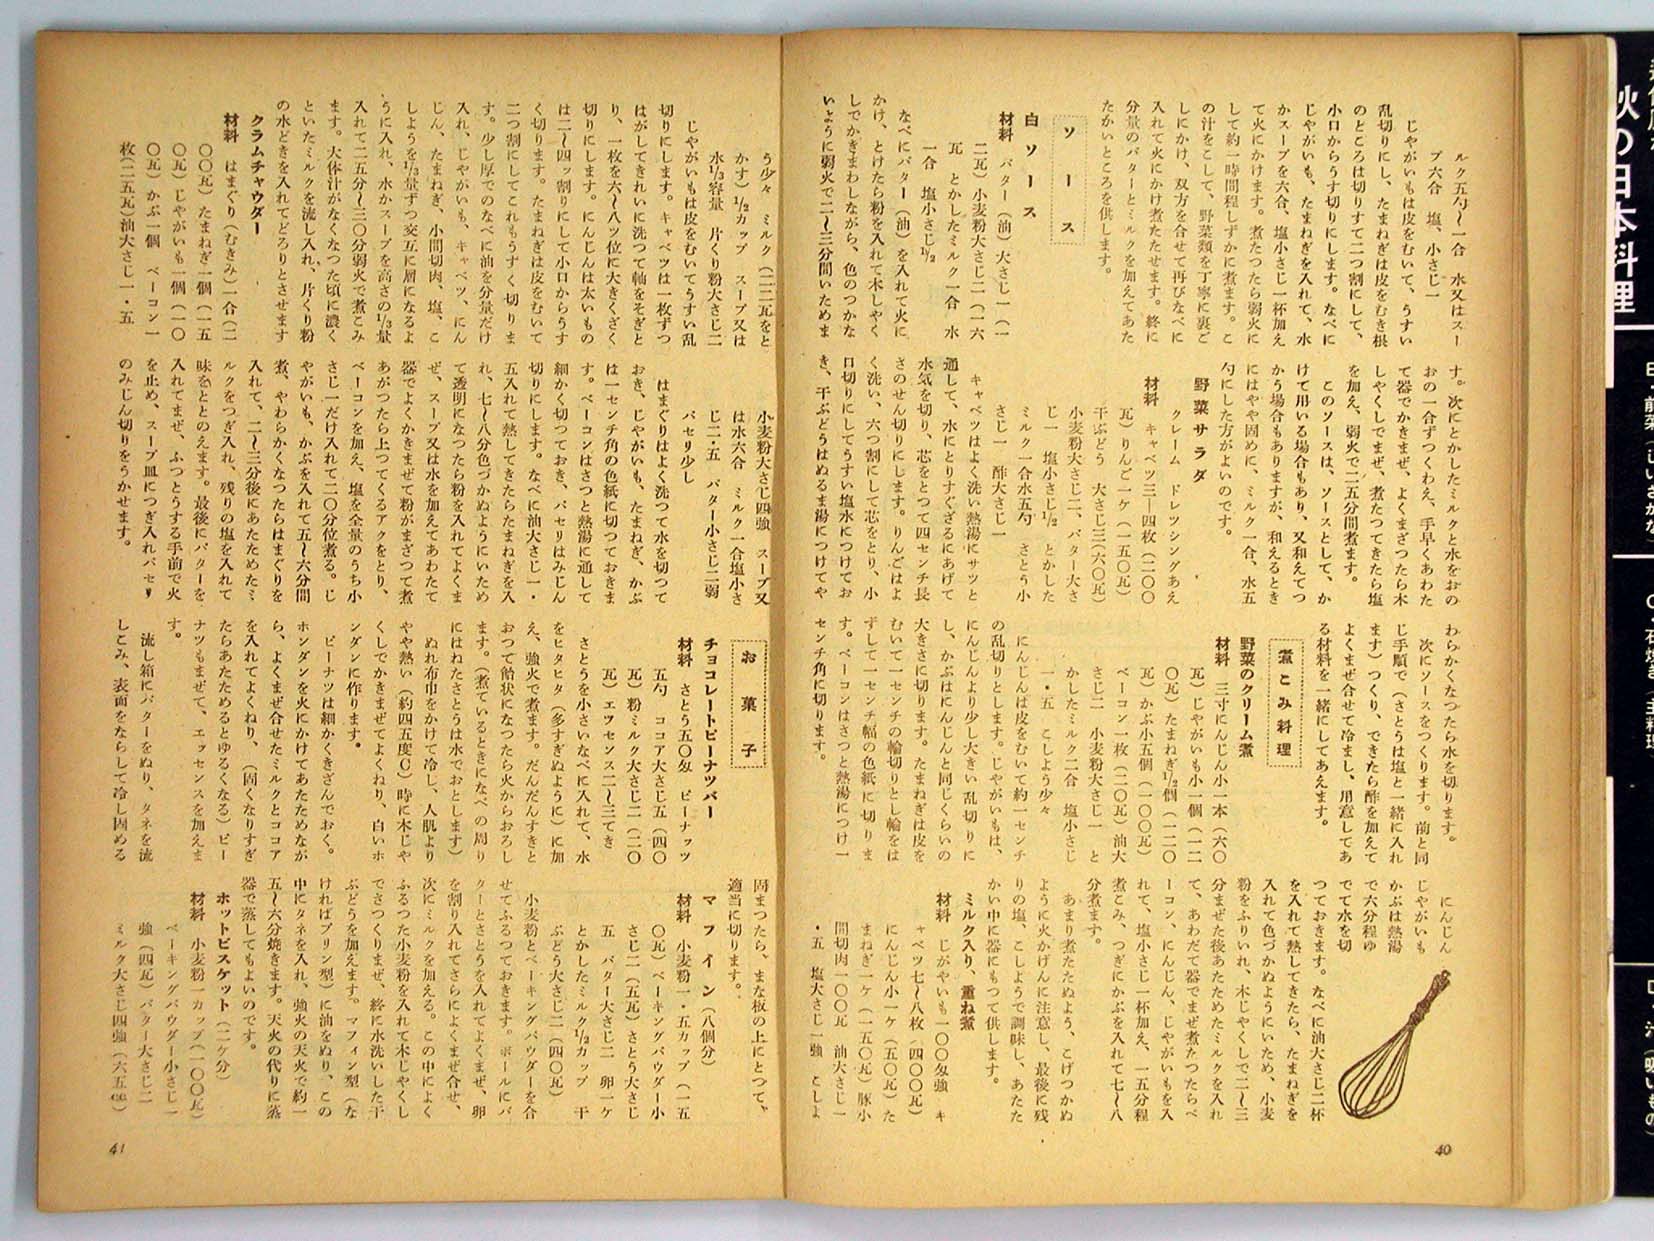 ルク五勺〜一合　水又はスー
プ六合　塩、小さじ一
じゃがいもは皮をむいて、うすい
乱切りにし、たまねぎは皮をむき根
のところは切りすて二つ割にして、
小口からうす切りにします。なべに
じゃがいも、たまねぎを入れて、水
かスープを六合、塩小さじ一杯加え
て火にかけます。煮たつたら弱火に
して約一時間程しずかに煮ます。こ
の汁をこして、野菜類を丁寧に裏ご
しにかけ、双方を合せて再びなべに
入れて火にかけ煮たたせます。終に
分量のバターとミルクを加えてあた
たかいところを供します。
ソース
白ソース
材料　バター（油）大さじ一（一
二瓦）小麦粉大さじ二（一六
瓦　とかしたミルク一合　水
一合　塩小さじ½
なべにバター（油）を入れて火に
かけ、とけたら粉を入れて木しゃく
しでかぎまわしながら、色のつかな
いように弱火で二〜三分間いためま
す。次にとかしたミルクと水をおの
おの一合ずつくわえ、手早くあわた
て器でかきまぜ、よくまざつたら木
しゃくしでまぜ、煮たつてきたら塩
を加え、弱火で一五分間煮ます。
このソースは、ソースとして、か
けて用いる場合もあり、又和えてつ
かう場合もありますが、和えるとき
にはやや固めに、ミルク一合、水五
勺にした方がよいのです。
野菜サラダ
クレーム　ドレツシングあえ
材料　キャベツ三―四枚（二〇〇
瓦）りんご一ケ（一五〇瓦）
干ぶどう　大さじ三（六〇瓦）
小麦粉大さじ二、バター大さ
じ一　塩小さじ½　とかした
ミルク一合水五勺　さとう小
さじ一　酢大さじ一
キャベツはよく洗い熱湯にサツと
通して、水にとりすぐざるにあげて
水気を切り、芯をとつて四センチ長
さのせん切りにします。りんごはよ
く洗い、六つ割にして芯をとり、小
口切りにしてうすい塩水につけてお
き、干ぶどうはぬるま湯につけてや
わらかくなつたら水を切ります。
次にソースをつくります。前と同
じ手順で（さとうは塩と一緒に入れ
ます）つくり、できたら酢を加えて
よくまぜ合せて冷まし、用意してあ
る材料を一緒にしてあえます。
煮こみ料理
野菜のクリーム煮
材料　三寸にんじん小一本（六〇
瓦）じゃがいも小一個（一二
〇瓦）たまねぎ½個（一二〇
瓦）かぶ小五個（一〇〇瓦）
ベーコン一枚（二〇瓦）油大
さじ二　小麦粉大さじ一　と
かしたミルク二合　塩小さじ
一・五　こしょう少々
にんじんは皮をむいて約一センチ
の乱切りとします。じゃがいもは、
にんじんより少し大きい乱切りに
し、かぶはにんじんと同じくらいの
大きさに切ります。たまねぎは皮を
むいて一センチの輪切りとし輪をは
ずして一センチ幅の色紙に切りま
す。ベーコンはさつと熱湯につけ一
センチ角に切ります。
にんじん
じゃがいも
かぶは熱湯
で六分程ゆ
でて水を切
つておきます。なべに油大さじ二杯
を入れて熱してきたら、たまねぎを
入れて色づかぬようにいため、小麦
粉をふりいれ、木じゃくしで二〜三
分まぜた後あたためたミルクを入れ
て、あわだて器でまぜ煮たつたらべ
ーコン、にんじん、じゃがいもを入
れて、塩小さじ一杯加え、一五分程
煮こみ、つぎにかぶを入れて七〜八
分煮ます。
あまり煮たたぬよう、こげつかぬ
ように火かげんに注意し、最後に残
りの塩、こしようで調味し、あたた
かい中に器にもつて供します。
ミルク入り、重ね煮
材料　じがやいも一〇〇匁強　キ
ャベツ七〜八枚（四〇〇瓦）
にんじん小一ケ（五〇瓦）た
まねぎ一ケ（一五〇瓦）豚小
間切肉一〇〇瓦　油大さじ一
・五　塩大さじ一強　こしょ
40
う少々　ミルク（二二瓦をと
かす）½カップ　スープ又は
水⅓容量　片くり粉大さじ二
じゃがいもは皮をむいてうすい乱
切りにします。キャベツは一枚ずつ
はがしてきれいに洗つて軸をそぎと
り、一枚を六〜八ツ位に大きくざく
切りにします。にんじんは太いもの
は二〜四ッ割りにして小口からうす
く切ります。たまねぎは皮をむいて
二つ割にしてこれもうすく切りま
す。少し厚でのなべに油を分量だけ
入れ、じゃがいも、キャベツ、にん
じん、たまねぎ、小間切肉、塩、こ
しようを⅓量ずつ交互に層になるよ
うに入れ、水かスープを高さの⅓量
入れて二五分〜三〇分弱火で煮こみ
ます。大体汁がなくなつた頃に濃く
といたミルクを流し入れ、片くり粉
の水どきを入れてどろりとさせます
クラムチャウダー
材料　はまぐり（むきみ）一合（二
〇〇瓦）たまねぎ一個（一五
〇瓦）じゃがいも一個（一〇
〇瓦）かぶ一個　ベーコン一
枚（二五瓦）油大さじ一・五
小麦粉大さじ四強　スープ又
は水六合　ミルク一合塩小さ
じ二・五　バター小さじ二弱
パセリ少し
はまぐりはよく洗つて水を切つて
おき、じゃがいも、たまねぎ、かぶ
は一センチ角の色紙に切つておきま
す。ベーコンはさつと熱湯に通して
細かく切つておき、パセリはみじん
切りにします。なべに油大さじ一・
五入れて熱してきたらたまねぎを入
れ、七〜八分色づかぬようにいため
て透明になつたら粉を入れてよくま
ぜ、スープ又は水を加えてあわたて
器でよくかきまぜて粉がまざつて煮
あがつたら上つてくるアクをとり、
ベーコンを加え、塩を全量のうち小
さじ一だけ入れて二〇分位煮る。じ
ゃがいも、かぶを入れて五〜六分間
煮、やわらかくなつたらはまぐりを
入れて、二〜三分後にあたためたミ
ルクをつぎ入れ、残りの塩を入れて
味をととのえます。最後にバターを
入れてまぜ、ふつとうする手前で火
を止め、スープ皿につぎ入れパセリ
のみじん切りをうかせます。
お菓子
チョコレートピーナツバー
材料　さとう五〇匁　ピーナッツ
五勺　ココア大さじ五（四〇
瓦）粉ミルク大さじ二（二〇
瓦）エツセンス二〜三てき
さとうを小さいなべに入れて、水
をヒタヒタ（多すぎぬように）に加
え、強火で煮ます。だんだんすきと
おつて飴状になつたら火からおろし
ます。（煮ているときになべの周り
にはねたさとうは水でおとします）
ぬれ布巾をかけて冷し、人肌より
やや熱い（約四五度C）時に木じゃ
くしでかきまぜてよくねり、白いホ
ンダンに作ります。
ピーナツは細かくきざんでおく。
ホンダンを火にかけてあたためなが
ら、よくまぜ合せたミルクとココア
を入れてよくねり、（固くなりすぎ
たらあたためるとゆるくなる）ピー
ナツもまぜて、エッセンスを加えま
す。
流し箱にバターをぬり、タネを流
しこみ、表面をならして冷し固める
固まつたら、まな板の上にとつて、
適当に切ります。
マフイン（八個分）
材料　小麦粉一・五カップ（一五
〇瓦）ベーキングパウダー小
さじ二（五瓦）さとう大さじ
五　バター大さじ二　卵一ケ
とかしたミルク½カップ　干
ぶどう大さじ二（四〇瓦）
小麦粉とベーキングパウダーを合
せてふるつておきます。ボールにバ
ターとさとうを入れてよくまぜ、卵
を割り入れてさらによくまぜ合せ、
次にミルクを加える。この中によく
ふるつた小麦粉を入れて木じゃくし
でさつくりまぜ、終に水洗いした干
ぶどうを加えます。マフィン型（な
ければプリン型）に油をぬり、この
中にタネを入れ、強火の天火で約一
五〜六分焼きます。天火の代りに蒸
器で蒸してもよいのです。
ホットビスケット（二ケ分）
材料　小麦粉一カップ（一〇〇瓦）
ベーキングパウダー小さじ一
強（四瓦）バター大さじ二
ミルク大さじ四強（六五cc）
41
秋の日本料理